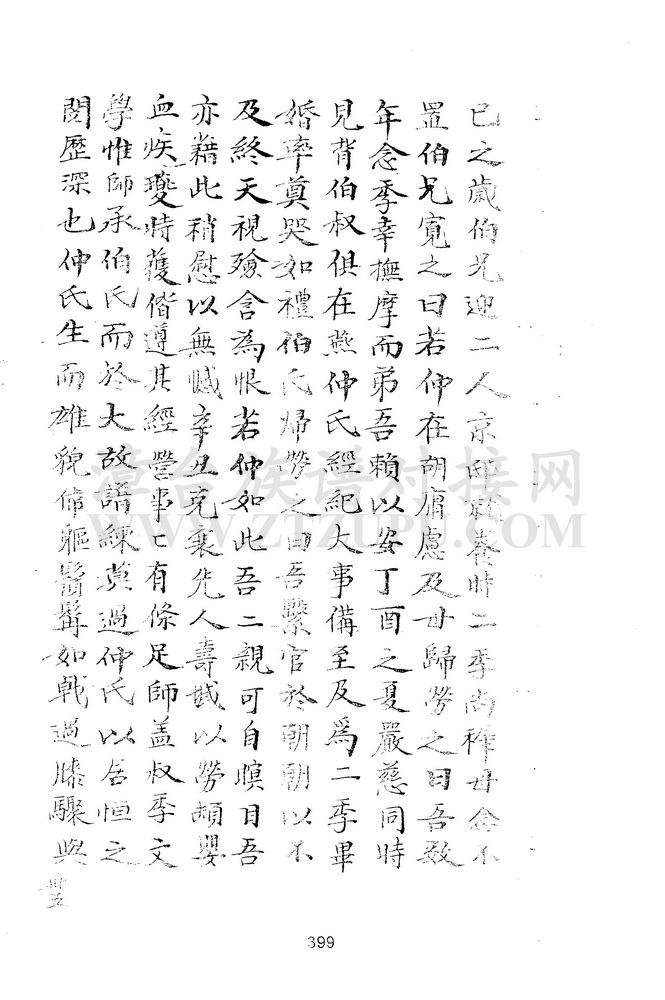 已之歲伯兄迎二人京邸就養時二季尚稚母念不
置伯兄寬之曰若仲在胡庸慮及母歸勞之曰吾數
年念季幸撫摩而弟吾賴以安丁酉之夏嚴慈同時
見背伯叔俱在燕仲氏經紀大事備至及爲二季畢
婚率奠哭如禮伯氏歸勞之曰吾繫官於朝朝以不
及終天視殮含為恨若仲如此吾二親可自暝目吾
亦藉此稍慰以無憾辛丑克襄先人壽域以勞頓嬰
血疾璦時蔓偕遵其經營事亡有條足師盖叔季文
學惟師承伯氏而於大故諳練莫過仲氏以居恒之
閱歷深也仲氏生而雄貌偉軀鬍髯如戟過膝驟與
卅五
399
漳台族谱对接网
WWW.ZTZUPU.COM